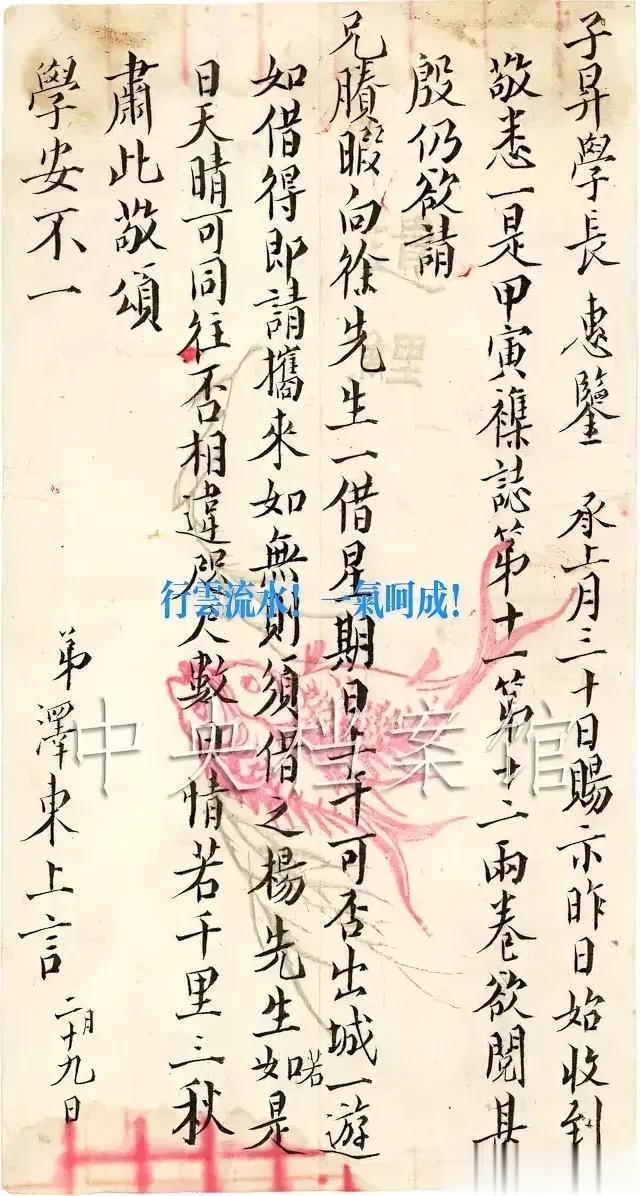 子昇學長 惠鑒 承上月三十日賜示昨日始收到
敬悉一是甲寅襍誌第十一第十二兩卷欲閱甚
殷仍欲請
兄賸暇向徐先生一借星期日上午可否出城一遊
如借得即請攜來如無則須借之楊先生如是
日天晴可同往否相違咫尺數日情若千里三秋
肅此敬頌
學安不一
弟澤東上言 二月十九日
行雲流水！一氣呵成！
中央档案馆